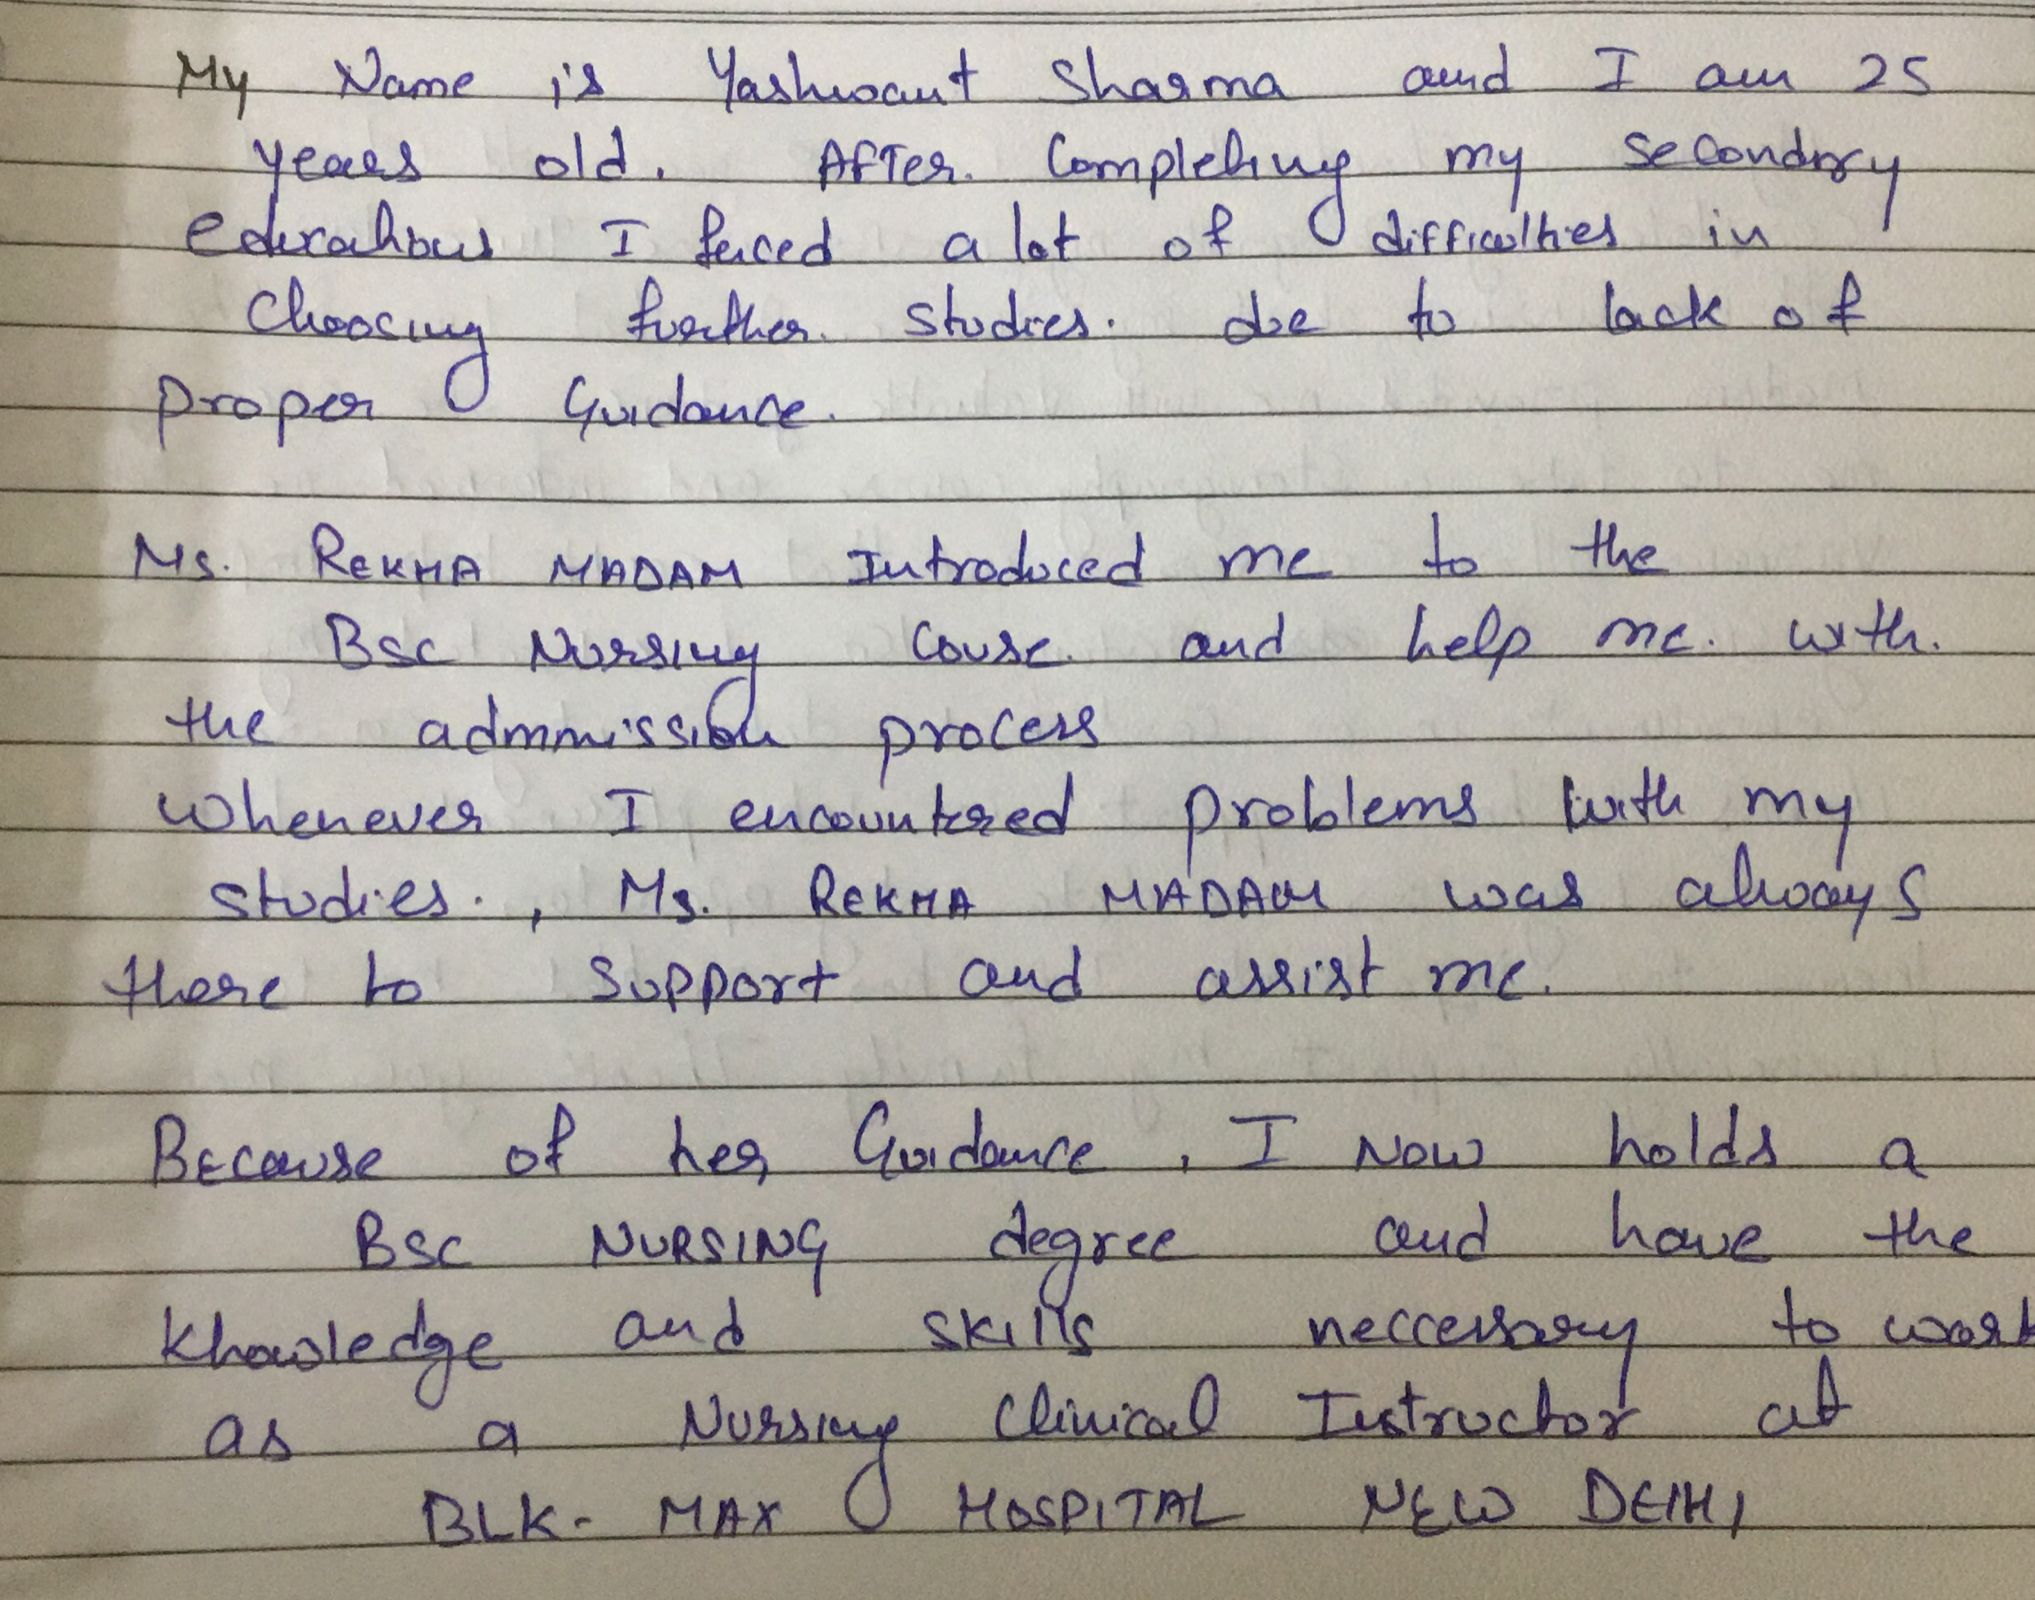 My Name is Yashwant Sharma and I am 25
years old. After Completing my secondry
educations I faced a lot of difficulties in
Choosing further studies. due to lack of
proper Guidance.
Ms. REKHA MADAM Introduced me to the
Bsc Nursing Couse and help me. with.
the admmission process
Whenever I encountered problems with my
studies. , Ms. REKHA MADAM was always
there to support and assist me.
Because of her Guidance, I Now holds a
Bsc NURSING degree and have the
Knowledge and skills neccessary to work
as a Nursing Clinical Instructor at
BLK- MAX HOSPITAL NEW DElHI